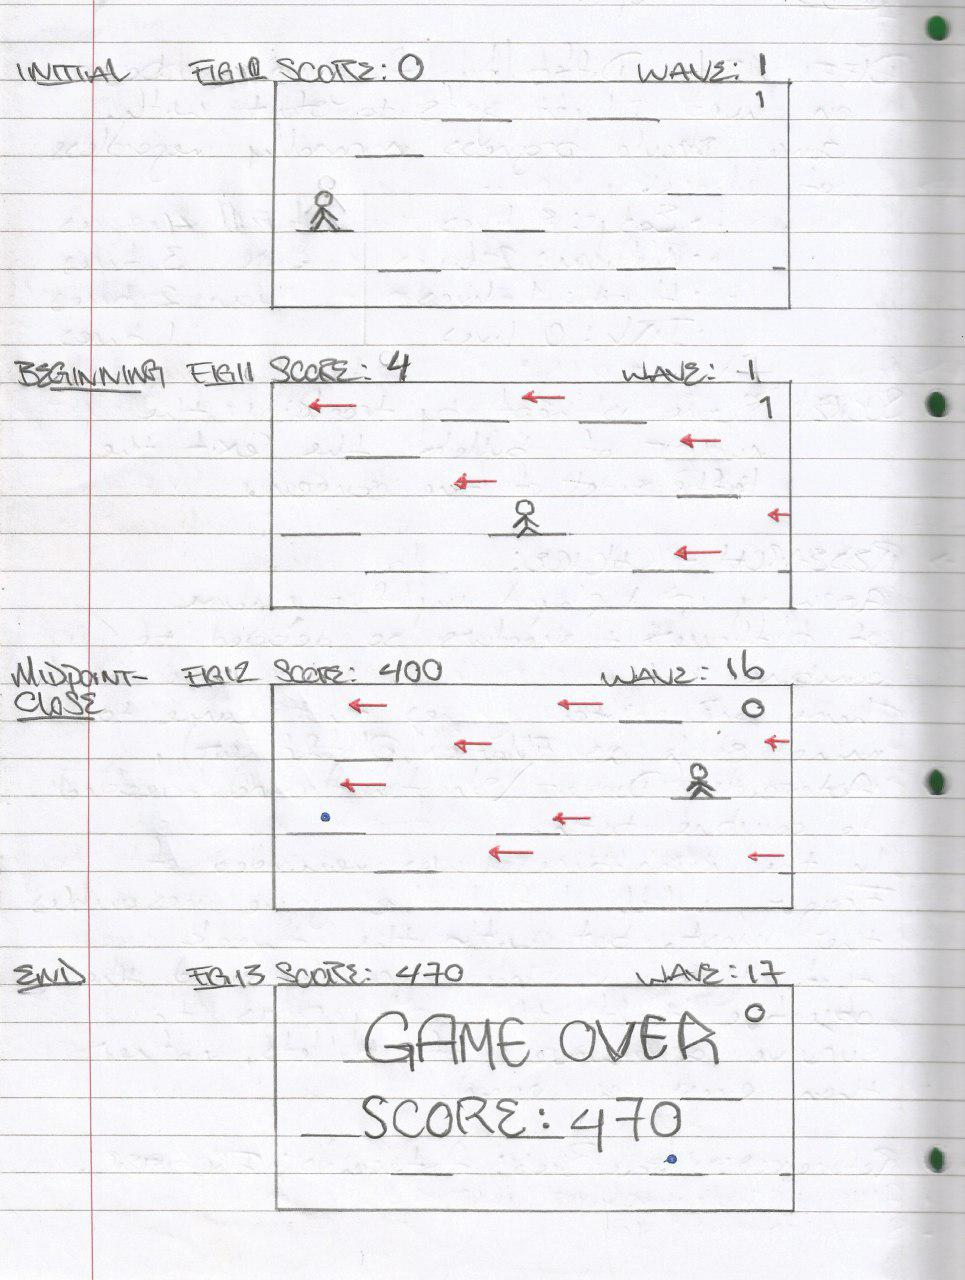 INITIAL FIG10 SCORE: 0 WAVE: 1
1
BEGINNING FIG11 SCORE: 4 WAVE: 1
1
MIDPOINT- FIG12 SCORE: 400 WAVE: 16
CLOSE
0
END FIG13 SCORE: 470 WAVE: 17
0
GAME OVER
SCORE: 470